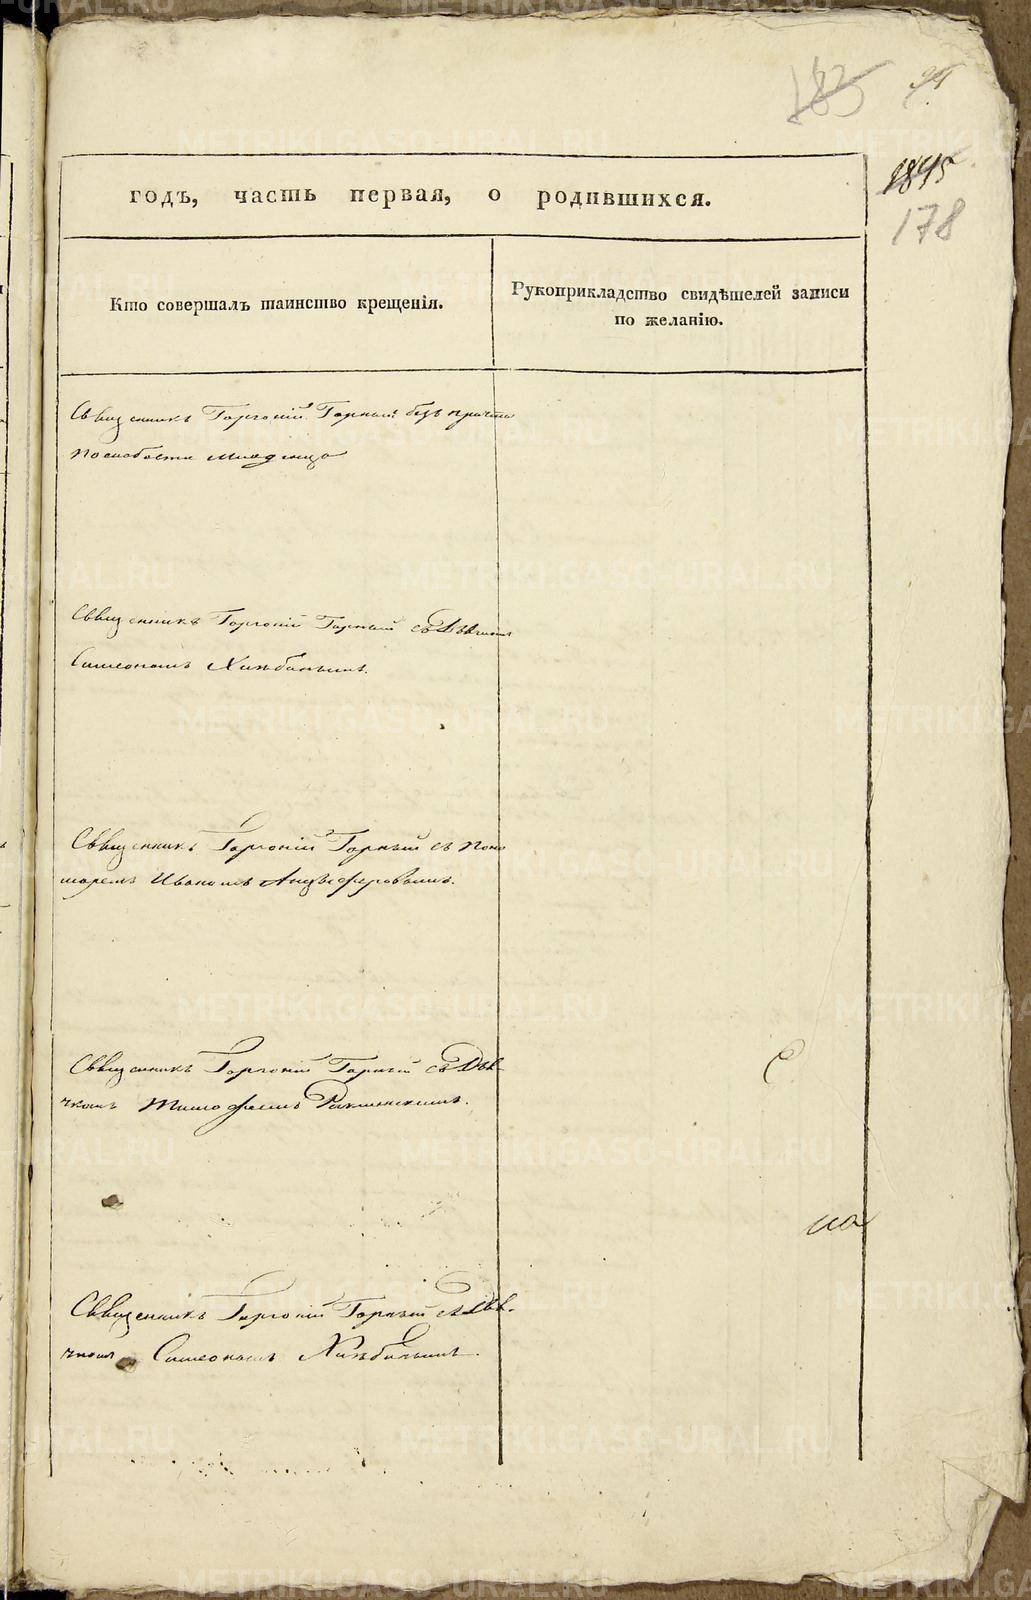 185 94
1845
178
годъ, часть первая, о родившихся.
Кто совершалъ таинство крещенія.
Рукоприкладство свидѣтелей записи
по желанію.
Священникъ Горгоній Горный безъ причта
по слабости младенца
Священникъ Горгоній Горный съ Дьячкомъ
Симеономъ Хлѣбинымъ.
Священникъ Горгоній Горный съ Поно
маремъ Иваномъ Анцыферовымъ.
Священникъ Горгоній Горный съ Дья-
чкомъ Тимофеемъ
с
на
Священникъ Горгоній Горный съ Дья-
чкомъ Симеономъ Хлѣбинымъ.
METRIKI.GASO-URAL.RU